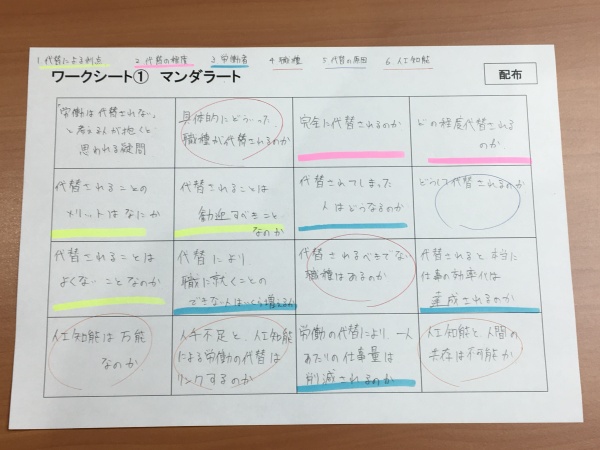 1 代替による利点 2 代替の程度 3 労働者 4 職種 5 代替の原因 6 人工知能
ワークシート① マンダラート
配布
「労働は代替されない」
と考える人が抱くと
思われる疑問
具体的にどういった
職種が代替されるのか
完全に代替されるのか
どの程度代替される
のか
代替されることの
メリットはなにか
代替されることは
歓迎すべきこと
なのか
代替されてしまった
人はどうなるのか
どうして代替されるのか
代替されることは
よくないことなのか
代替により
職に就くことの
できない人はいくら増えるか
代替されるべきでない
職種はあるのか
代替されると本当に
仕事の効率化は
達成されるのか
人工知能は万能
なのか
人手不足と、人工知能
による労働の代替は
リンクするのか
労働の代替により、一人
あたりの仕事量は
削減されるのか
人工知能と、人間の
共存は不可能か